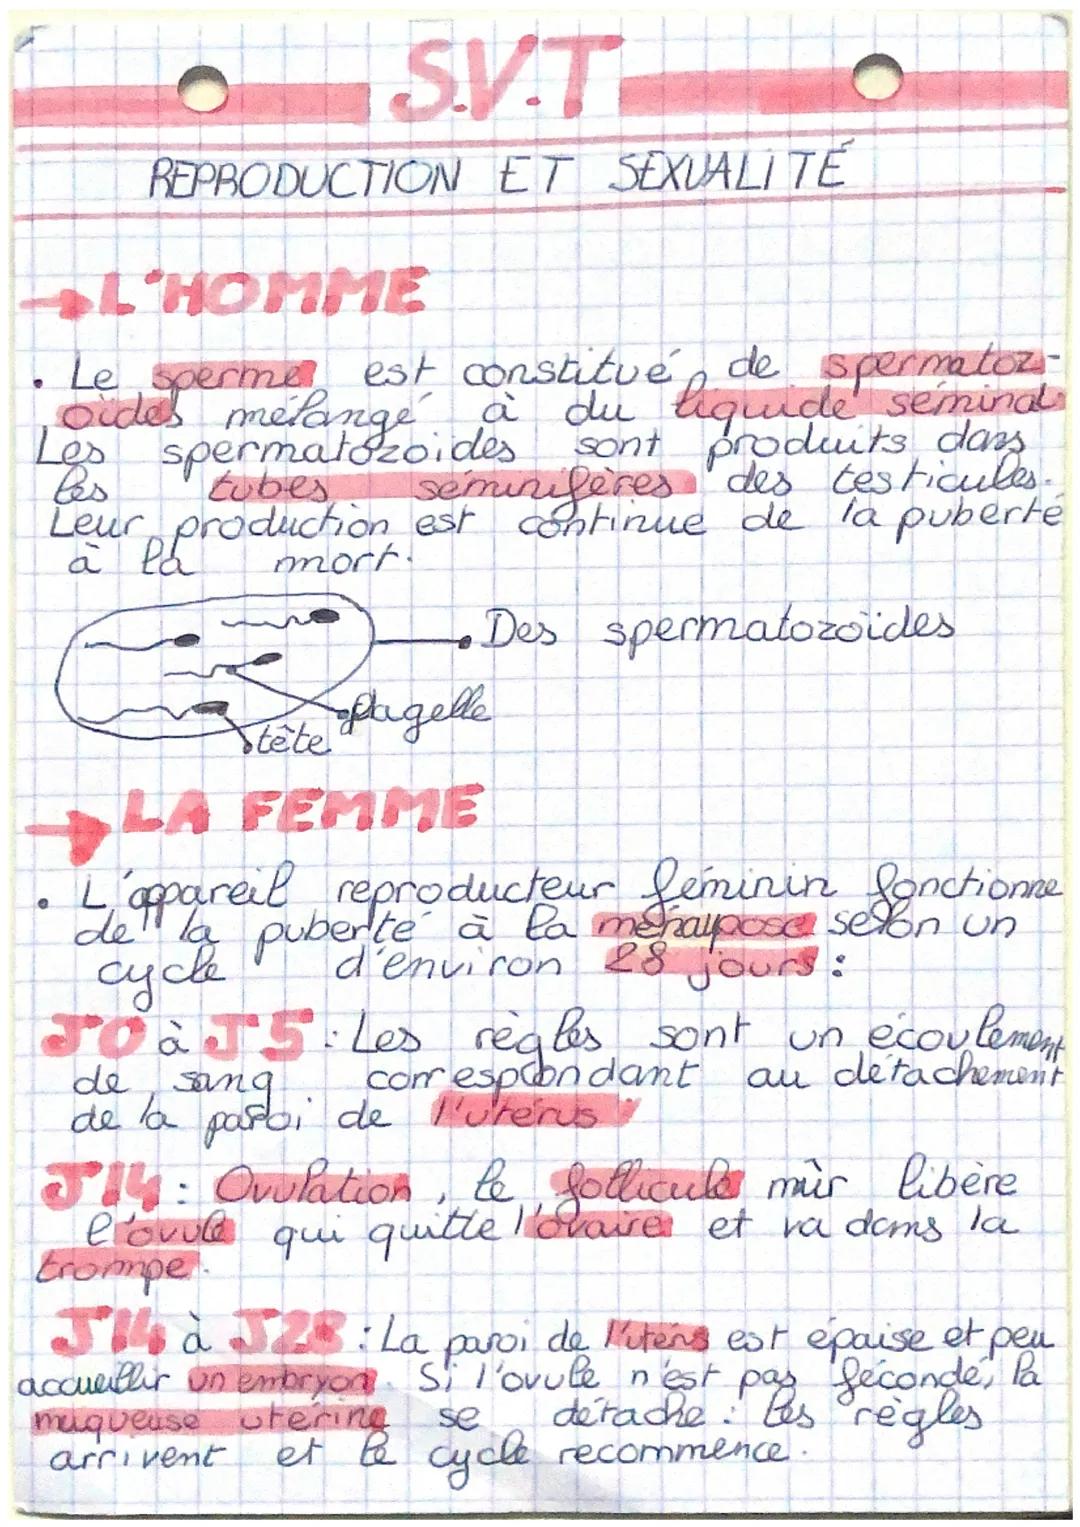 S.V.T
REPRODUCTION ET SEXUALITÉ
→ L'HOMME
• Le sperme est constitué de spermatoz-
oïdes mélangé à du liquide séminal
Les spermatozoides sont produits dans
les tubes séminifères des testicules.
Leur production est continue de la puberté
à la mort.
Des spermatozoïdes
flagelle
tête
→ LA FEMME
• L'appareil reproducteur féminin fonctionne
de la puberté à la ménaupose selon un
cycle d'environ 28 jours :
J0 à J5 : Les règles sont un écoulement
de sang correspondant au détachement
de la paroi de l'utérus
J14 : Ovulation, le follicule mûr libère
l'ovule qui quitte l'ovaire et va dans la
trompe.
J14 à J28 : La paroi de l'utérus est épaise et peu
accueillir un embryon. Si l'ovule n'est pas fécondé, la
muqueuse utérine se détache : les règles
arrivent et le cycle recommence.